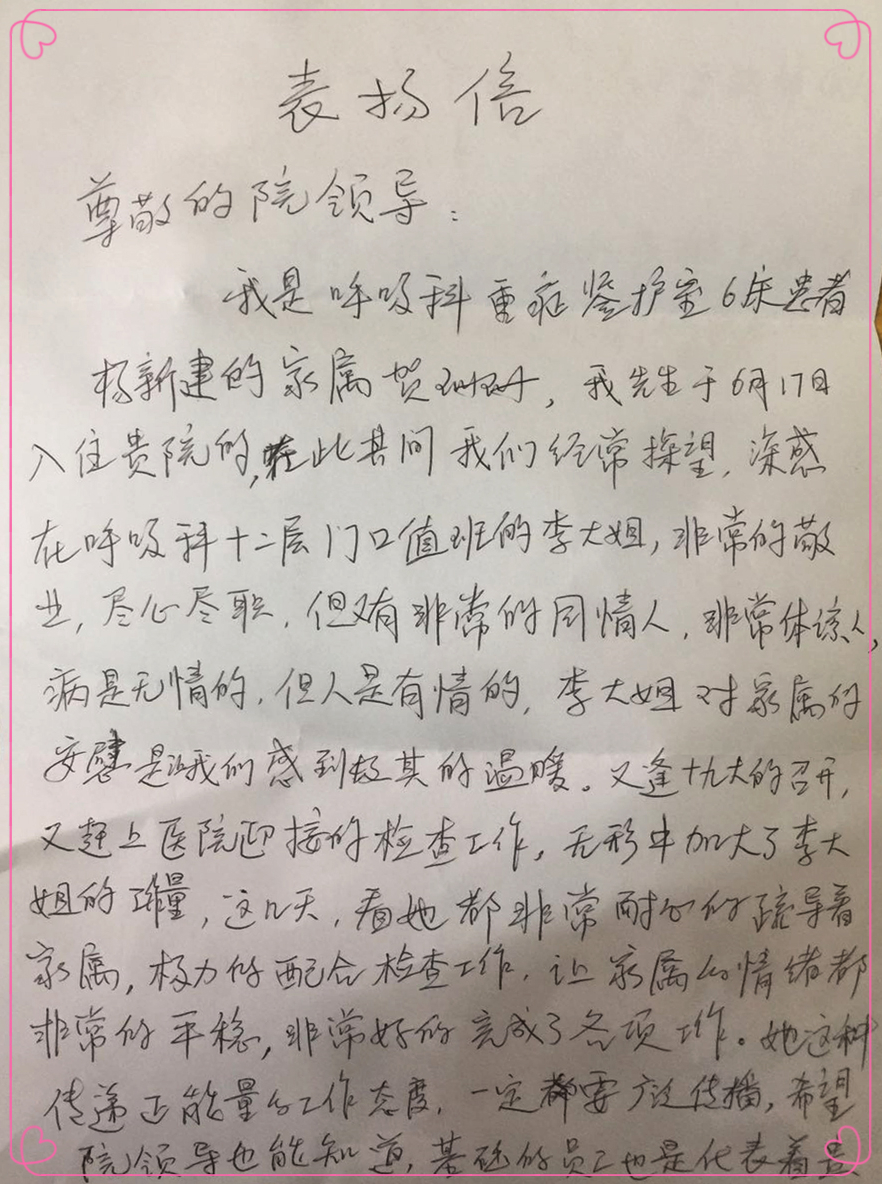 表扬信
尊敬的院领导：
我是呼吸科重症监护室6床患者
杨新建的家属贺珊珊，我先生于6月17日
入住贵院的，在此其间我们经常探望，深感
在呼吸科十二层门口值班的李大姐，非常的敬
业，尽心尽职，但又有非常的同情人，非常体谅人，
病是无情的，但人是有情的，李大姐对家属的
安慰是让我们感到极其的温暖。又逢十九大的召开，
又赶上医院迎接的检查工作，无形中加大了李大
姐的工作量，这几天，看她都非常耐心的疏导着
家属，极力的配合检查工作，让家属的情绪都
非常的平稳，非常好的完成了各项工作。她这种
传递正能量的工作态度，一定都要广泛传播，希望
院领导也能知道，基础的员工也是代表着贵